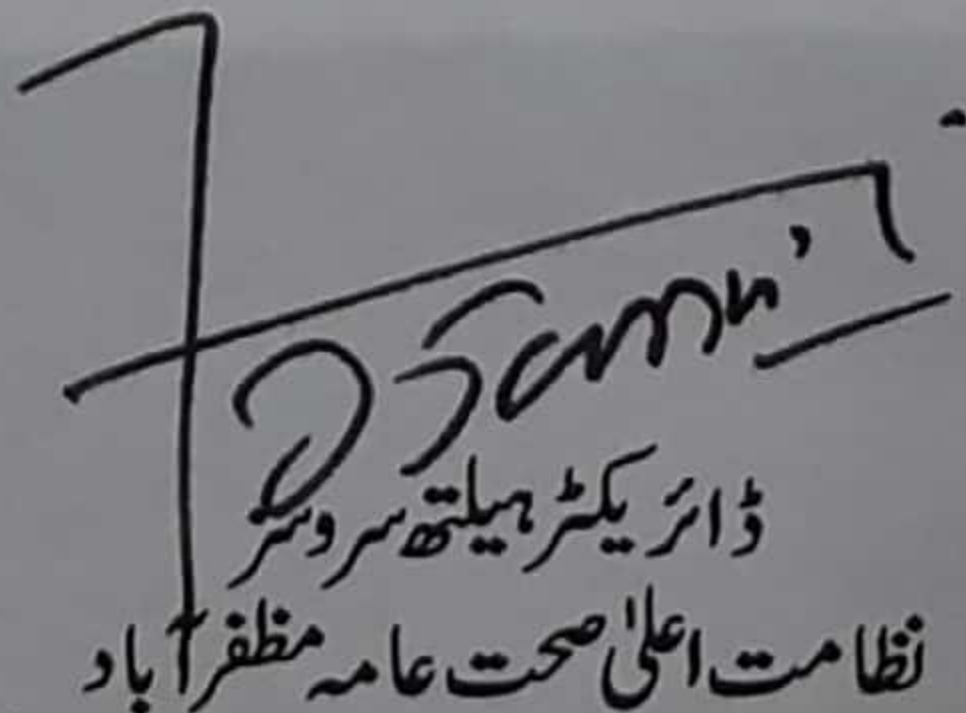 ڈائریکٹر ہیلتھ سروسز
نظامت اعلیٰ صحت عامہ مظفرآباد